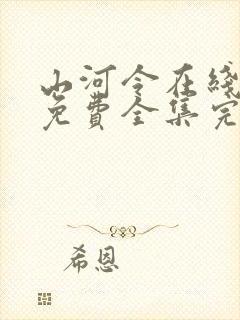 山河令在綫
免費全集完
希恩